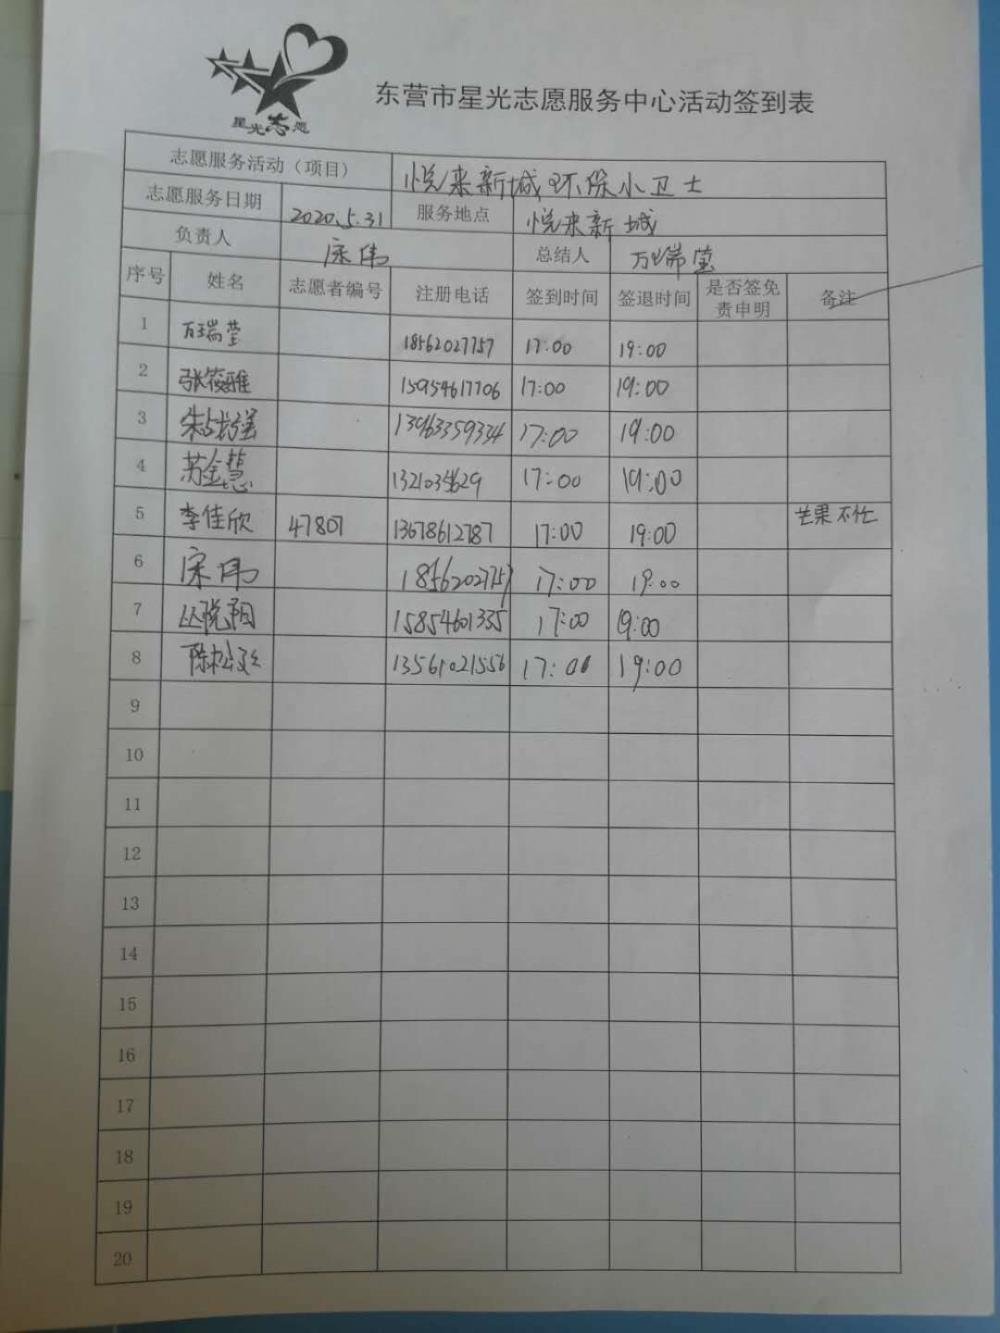 星光志愿
东营市星光志愿服务中心活动签到表
志愿服务活动（项目） 悦来新城环保小卫士
志愿服务日期 2020.5.31 服务地点 悦来新城
负责人 宋伟 总结人 万瑞莹
序号 姓名 志愿者编号 注册电话 签到时间 签退时间 是否签免责申明 备注
1 万瑞莹 18562027757 17:00 19:00
2 张筱雅 15954617706 17:00 19:00
3 朱战强 13963359334 17:00 19:00
4 苏金慧 17:00 19:00
5 李佳欣 47807 13678612787 17:00 19:00 芒果不忙
6 宋伟 18562027757 17:00 19:00
7 丛悦阳 15854601335 17:00 19:00
8 13561021556 17:00 19:00
9
10
11
12
13
14
15
16
17
18
19
20